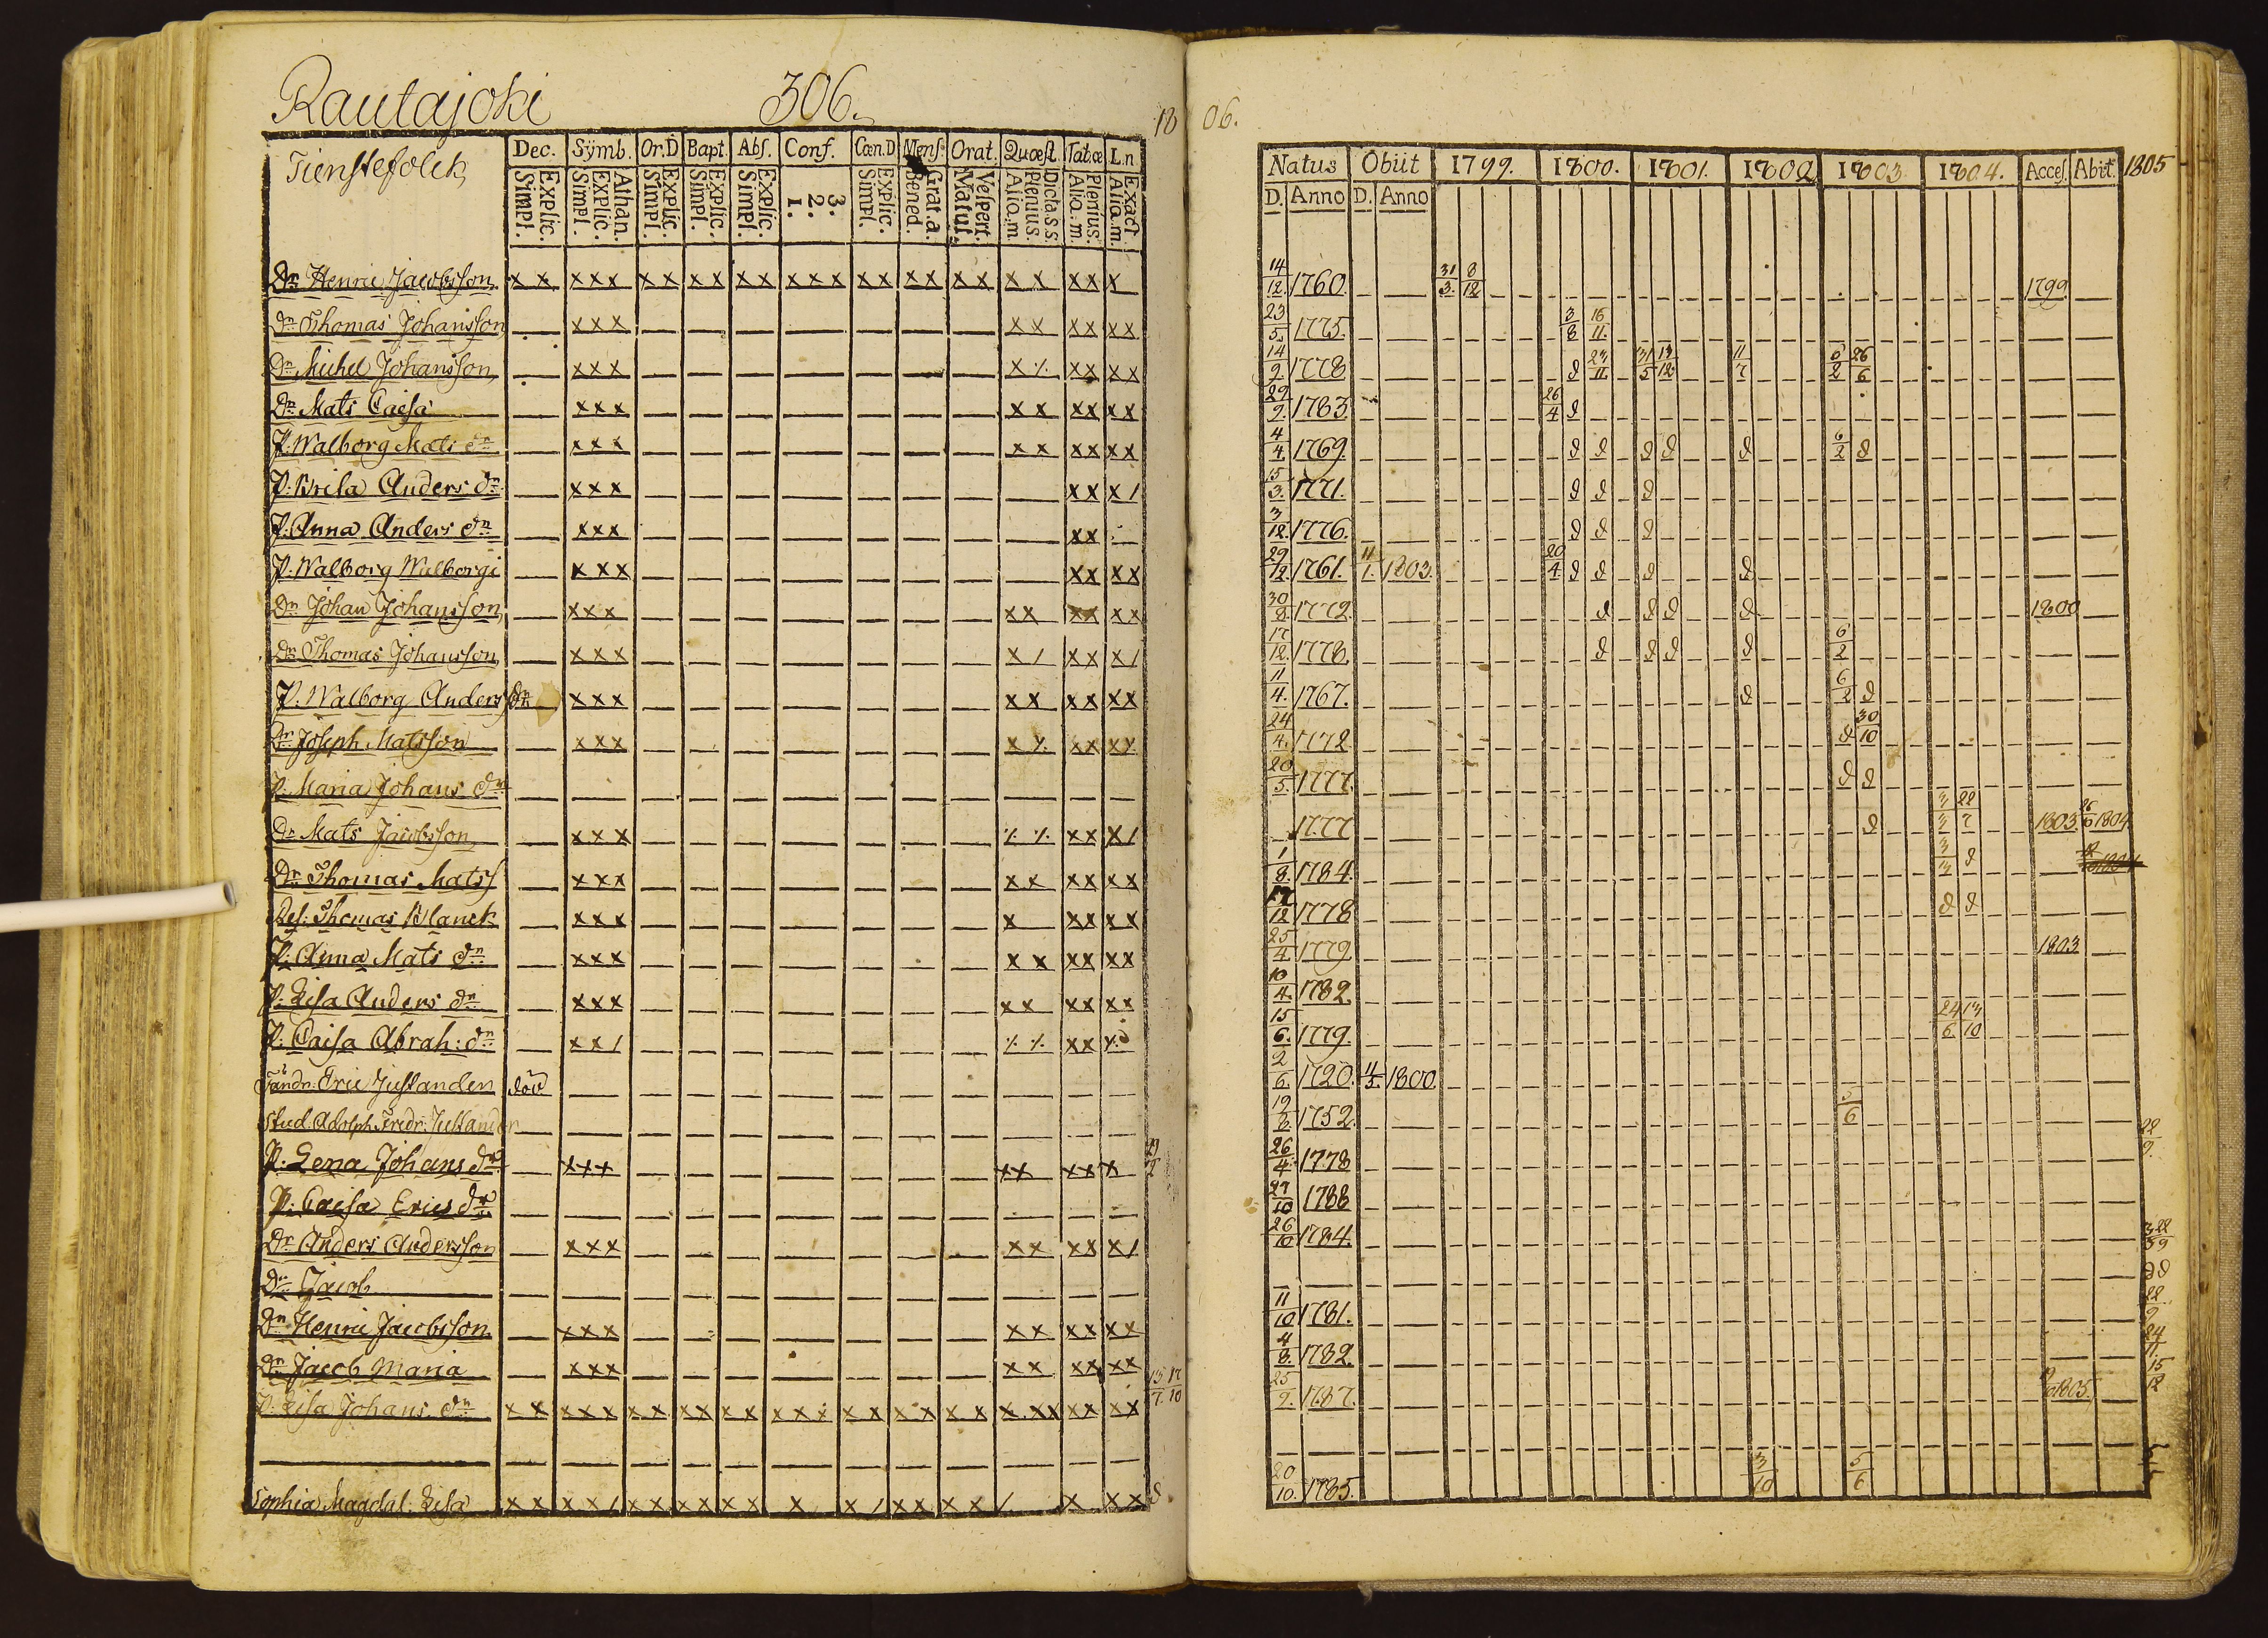 Rautajoki 306.
18 06.
Tienstefolck
Dec. Sÿmb. Or.D Bapt. Abs. Conf. Cœn.D Mens. Orat. Quœst. Tat.œ L.n
Explic. Simpl. Athan. Explic. Simpl. Explic. Simpl. Explic. Simpl. Explic. Simpl. 3. 2. 1. Explic. Simpl. Grat.a. Bened. Vespert. Matut. Dicta.s.s. Plenius. Alio.m. Plenius. Alio.m. Exact Alio.m.
Dn Henric Jacobsson x x x x x x x x x x x x x x x x x x x x x x x x x
dn Thomas Johansson x x x x x x x x x
Dn Michel Johansson x x x x ⁒ x x x x
Dn Mats Caisa x x x x x x x x x
P. Walborg Mats dr x x x x x x x x x
P. Brita Anders dr x x x x x x /
P. Anna Anders dr x x x x x
P. Walborg Walborgs x x x x x x x
Dn Johan Johansson x x x x x x x x x
Dn Thomas Johansson x x x x / x x x /
P. Walborg Anders dr x x x x x x x x x
Dn Joseph Matsson x x x x ⁒ x x x ⁒
P. Maria Johans dr
Dn Mats Jacobsson x x x ⁒ ⁒ x x x /
Dn Thomas Matss x x x x x x x x x
Thomas Blanck x x x x x x x x
P. Anna Mats dr x x x x x x x x x
P. Lisa Anders dr x x x x x x x x x
P. Caisa Abrah: dr x x / ⁒ ⁒ x x
Eric Justanden död
Stud. Adolph Fredr. Justander
P. Lena Johans dr x x x x x x x x
P. Caisa Erics dr
Dr Anders Andersson x x x x x x x x /
Dn Jacob
Dn Henric Jacobsson x x x x x x x x x
Dn Jacob Maria x x x x x x x x x
P. Lisa Johans dr x x x x x x x x x x x x x x x x x x x x x x x x x x
Sophia Magdal. Lisa x x x x / x x x x x x x x / x x x x / x x x
Natus Obiit 1799. 1800. 1801. 1802 1803. 1804. Acces. Abiit. 1805
D. Anno D. Anno
14/12. 1760. 31/3. 8/12 1799
23/5. 1775. 3/8 16/11.
14/9. 1778 d 31/5 11/7 6/2 26/6
29/9. 1783. 26/4 d
4/4. 1769. d d d d d 6/2 d
15/3. 1771. d d d
3/12. 1776. d d d
29/12. 1761. 11/1. 1803. 20/4 d d d d
30/8 1772. d d d d 1800
17/12. 1778. d d d d 6/2
11/4. 1767. d 6/2 d
24/4. 1772 d 30/10
20/5. 1777. d d
1777 d 22/7 1803. 1804
1/8. 1784. d
1778 d d
25/4 1779 1803
10/4. 1782.
15/6. 1779. 24/6 13/10
2/6. 1720. 1800
1752. 5/6
26/4. 1778 22/9.
27/10 1788
26/10 1784. 22/9
d d
11/10 1781. 22/9
4/8. 1782. 24/11. 15/12
25/9. 1787. 1805.
20/10. 1785. 3/10 5/6